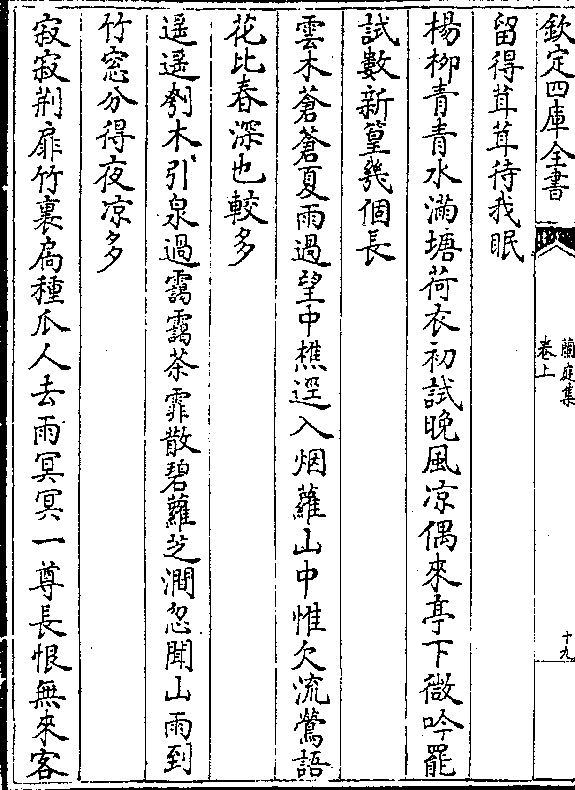 欽定四庫全書
蘭庭集
卷上
十九
留得茸茸待我眠
楊柳青青水滿塘荷衣初試晚風凉偶來亭下微吟罷
試數新篁幾個長
雲木蒼蒼夏雨過望中樵逕入烟蘿山中惟欠流鶯語
花比春深也較多
遥遥刳木引泉過靄靄茶霏散碧蘿芝澗忽聞山雨到
竹窓分得夜凉多
寂寂荆扉竹裏扄種瓜人去雨冥冥一尊長恨無來客